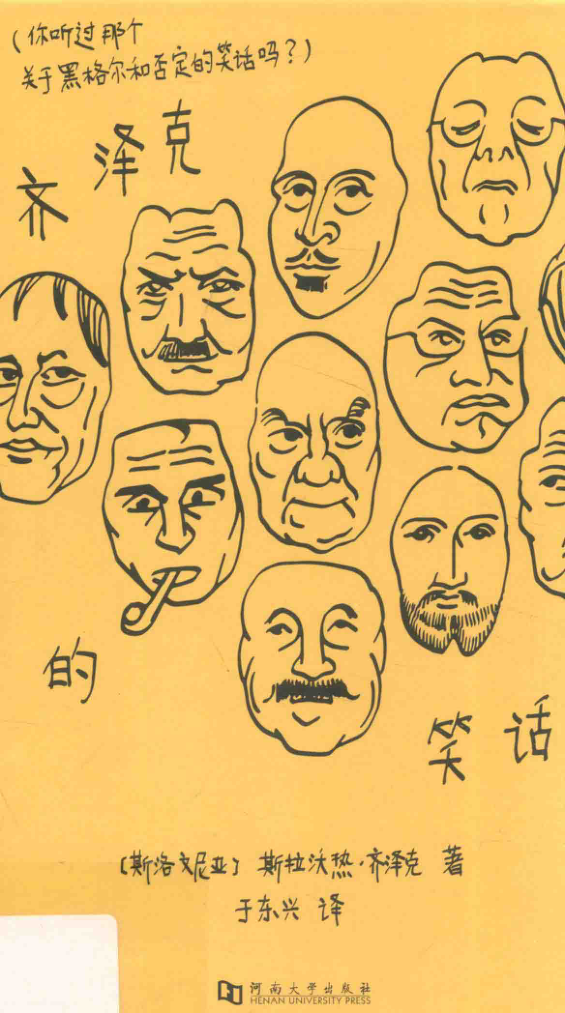 (你听过那个
关于黑格尔和否定的笑话吗?)
齐泽克
的
笑话
[斯洛文尼亚] 斯拉沃热·齐泽克 著
于东兴 译
河南大学出版社
HENAN UNIVERSITY PRESS